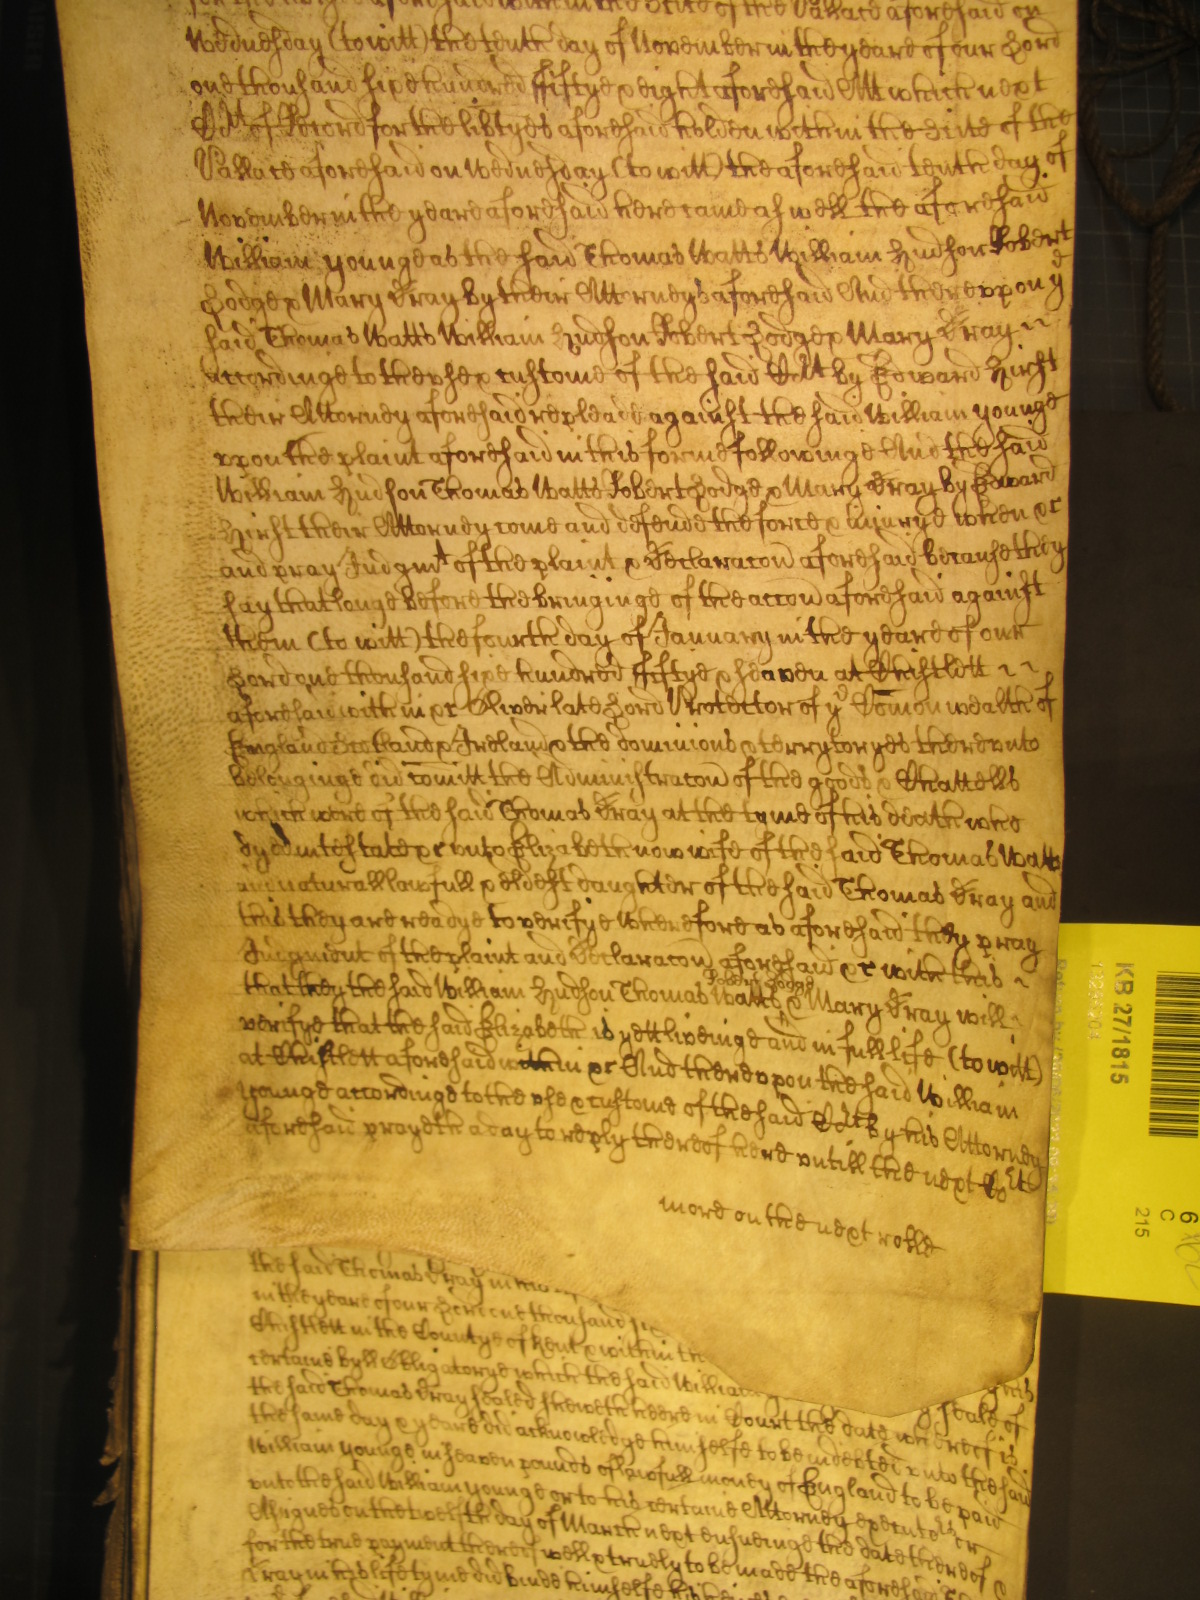 for the libtyes aforesaid within the Scite of the Pallace aforesaid on
Wednesday (to witt) the tenth day of November in the yeare of our Lord
one thousand sixe hundred fiftye & eight aforesaid Att which next
Co:rt of Record for the libtyes aforesaid holden within the Scite of the
Pallace aforesaid on Wednesday (to witt) the aforesaid tenth day of
November in the yeare aforesaid here came as well the aforesaid
William younge as the said Thomas Watts William Hudson Robert
Hodge & Mary Dray by their Attorneys aforesaid And thereuppon ye
said Thomas Watts William Hudson Robert Hodge & Mary Dray
accordinge to the use & custome of the said Co:rt by Edward Hirst
their Attorney aforesaid repleade against the said William younge
uppon the plaint aforesaid in this forme followinge And the said
William Hudson Thomas Watts Robert Hodge & Mary Dray by Edward
Hirst their Attorney come and defende the force & Iniurye when &c
and pray Judgmt of the plaint & Declaracon aforesaid because they
say that longe before the bringinge of the accon aforesaid against
them (to witt) the fourth day of January in the yeare of our
Lord one thousand sixe hundred fiftye & seaven at Chistlett
aforesaid within &c Oliver late Lord Protector of ye Comon wealth of
England Scotland & Ireland & the dominions & terrytoryes thereunto
belonginge did comitt the Administracon of the goods & Chattells
which were of the said Thomas Dray at the tyme of his death who
dyed intestate &c unto Elizabeth now wife of the said Thomas Watts
and naturall lawfull & eldest daughter of the said Thomas Dray and
this they are readye to verifye Wherefore as aforesaid they pray
Judgment of the plaint and Declaracon aforesaid &c with this
Robert Hodge
that they the said William Hudson Thomas Watts & Mary Dray will
verifye that the said Elizabeth is yett liveinge and in full life (to witt)
at Chistlett aforesaid within &c And thereuppon the said William
younge accordinge to the use & custome of the said Co:rt by his Attorney
aforesaid prayeth a day to reply thereof here untill the next Co:rt
more on the next rolle
the said Thomas Dray in
in the yeare of our Lord one thousand
Chistlett in the Countye of Kent & within the
certaine byll Obligatorye which the said William
the said Thomas Dray sealed sheweth heere in Court the date whereof is
the same day & yeare did acknowledge himselfe to be indebted unto the said
William younge in seaven pounds of lawfull money of England to be paid
unto the said William younge or to his certaine Attorney executors or
Assignes on the twelfth day of March next ensueinge the date thereof &
for the true payment thereof well & truely to be made the aforesaid
Dray in his life tyme did binde himselfe his
KB 27/1815
6
C
215